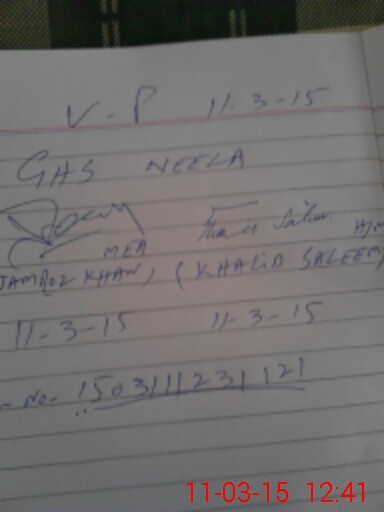 V-P 11-3-15
GHS NEELA
MEA HM
JAMROZ KHAN) (KHALID SALEEM)
11-3-15 11-3-15
-No- 1503111231121
11-03-15 12:41